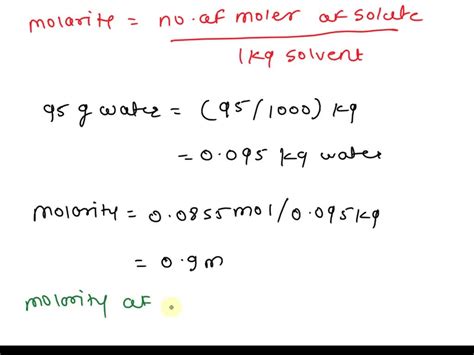 molarite = no. of moler of solute
1kg solvent
95 g water = (95/1000) kg
= 0.095 kg water
molority = 0.0855mol/0.095kg
= 0.9m
molority of